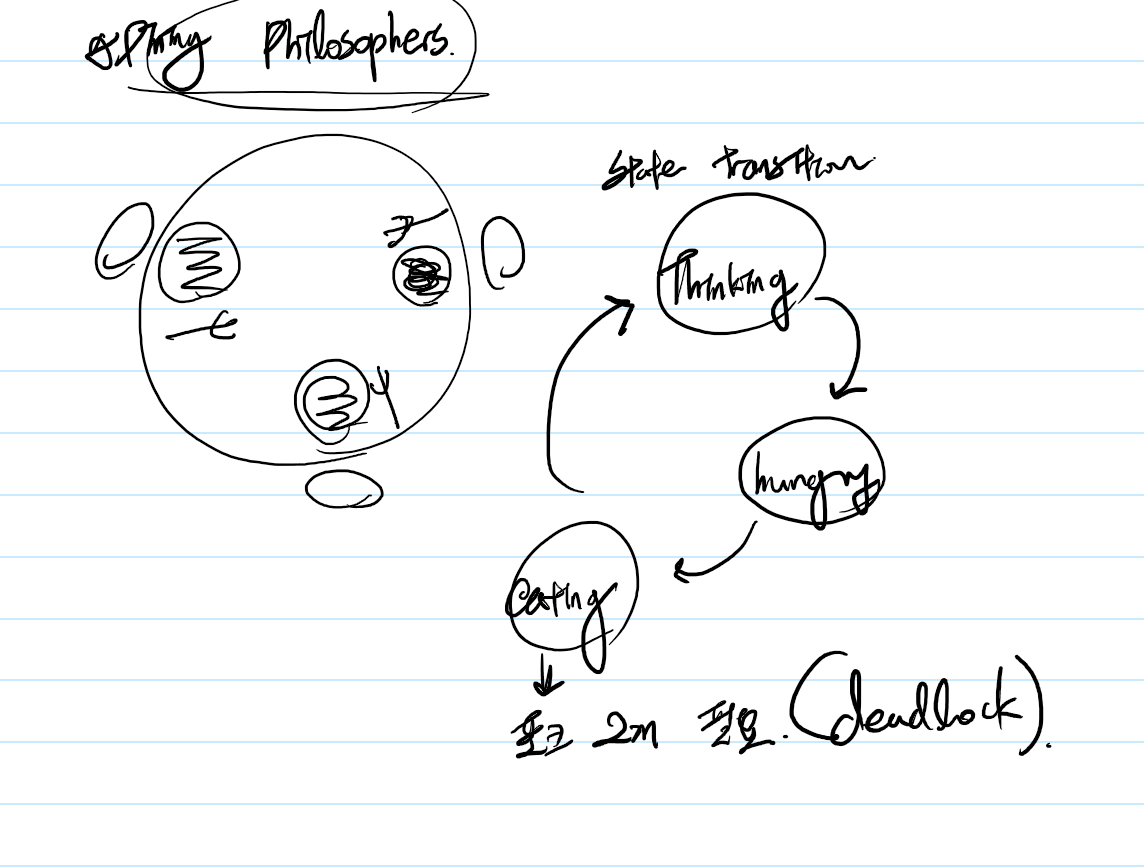 Dining Philosophers.
state transition
Thinking
hungry
eating
포크 2개 필요. (deadlock).